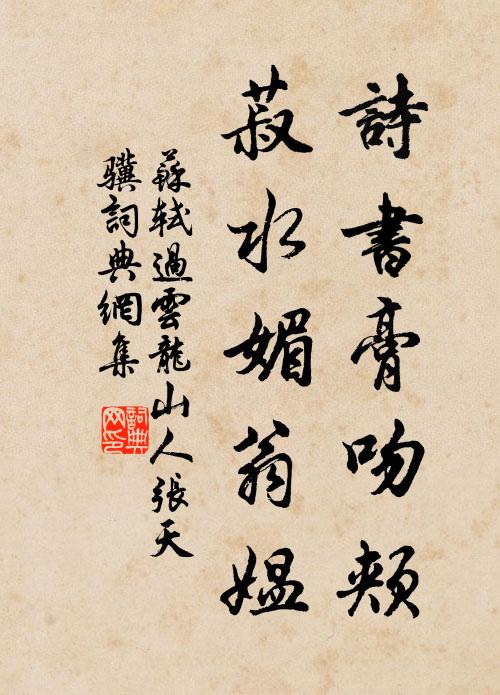 詩書膏吻頰
菽水媚翁媼
蘇軾過雲龍山人張天
驥詞典網集
詞典网印